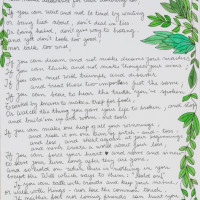 If you can wait and not be tired by waiting
Or being hated, don't give way to hating,
And yet don't look too good,
nor talk too wise;
If you can dream, and not make dreams your master;
If you can think and not make thoughts your aim;
If you can meet with triumph and disaster
And treat those two impostors just the same
If you can bear to hear the truth you've spoken
Twisted by knaves to make a trap for fools,
Or watch the things you gave your life to, broken,
If you can make one heap of all your winnings
and risk it on one turn of pitch-and-toss
and lose, and start again at your beginnings
and never breathe a word about your loss;
If you can force your heart and nerve and sinew
to serve your turn long after they are gone,
and so hold on when there is nothing in you
Except the Will which says to them: "Hold on"
If you can talk with crowds and keep your virtue,
or walk with Kings - nor lose the common touch,
If neither foes nor loving friends can hurt you